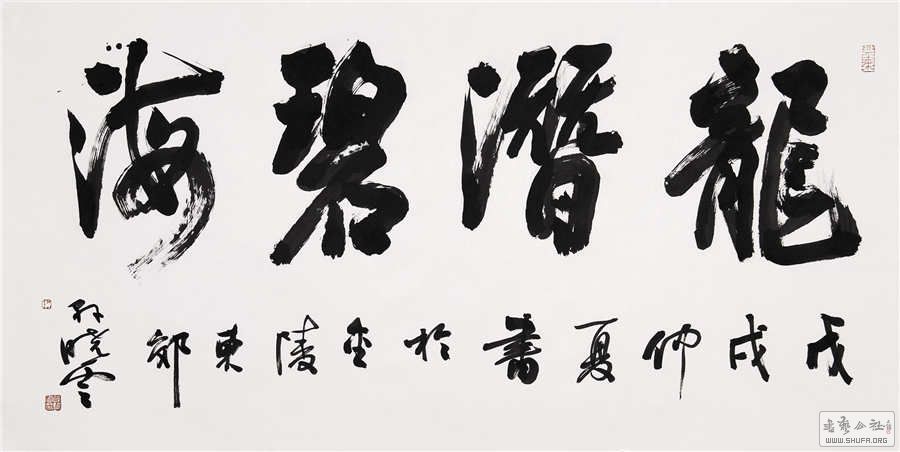 龍潛碧海
戊戌仲夏書於金陵東郊
孙晓雲
书艺公社
WWW.SHUFA.ORG